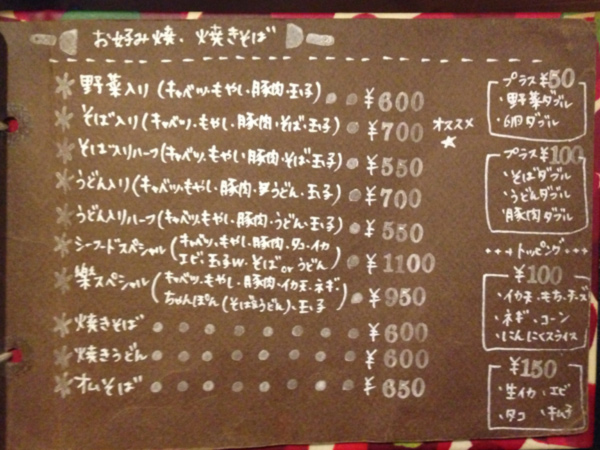 お好み焼、焼きそば
野菜入り (キャベツ・もやし・豚肉・玉子) ¥600
そば入り (キャベツ・もやし・豚肉・そば・玉子) ¥700 オススメ ★
そば入りハーフ (キャベツ・もやし・豚肉・そば・玉子) ¥550
うどん入り (キャベツ・もやし・豚肉・うどん・玉子) ¥700
うどん入りハーフ (キャベツ・もやし・豚肉・うどん・玉子) ¥550
シーフードスペシャル (キャベツ・もやし・豚肉・タコ・イカ
エビ・玉子W・そば or うどん) ¥1100
楽スペシャル (キャベツ・もやし・豚肉・イカ天・ネギ
ちゃんぽん (そば・うどん)・玉子) ¥950
焼きそば ¥600
焼きうどん ¥600
オムそば ¥650
プラス ¥50
・野菜ダブル
・卵ダブル
プラス ¥100
・そばダブル
・うどんダブル
・豚肉ダブル
トッピング
¥100
・イカ天・もち・チーズ
・ネギ・コーン
・にんにくスライス
¥150
・生イカ・エビ
・タコ・キムチ